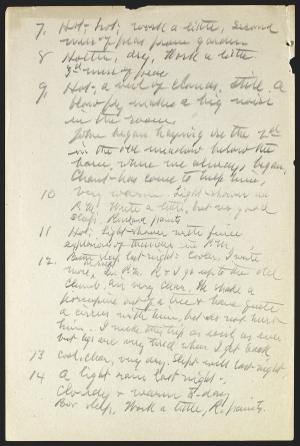 7. Hot - hot, work a little, second
mess of peas from garden
8 Hotter, dry, Work a little
3d mess of peas
9, Hot, a veil of clouds, still. A
blow fly makes a big noise
in the room.
John began haying on the 7th
in the old meadow below the
barn, where we always began,
Chant has come to help him,
10 Very warm. Light shower in
P.M. Write a little, but no good
sleep. R paints
11 Hot. Light shower with fierce
explosion of thunder in P.M.
12. Better sleep last night - cooler. I write
more, in P.M. R + J go up to the old
climb. air very clear. We shake a
porcupine out of a tree + have quite
a circus with him, but do not hurt
him. I made the trip as easily as ever
but legs are very tired when I get back
13 Cool, clear, very dry. Slept well last night
14 A light rain last night.
Cloudy + warm to-day
Poor sleep, Work a little, R. paints.